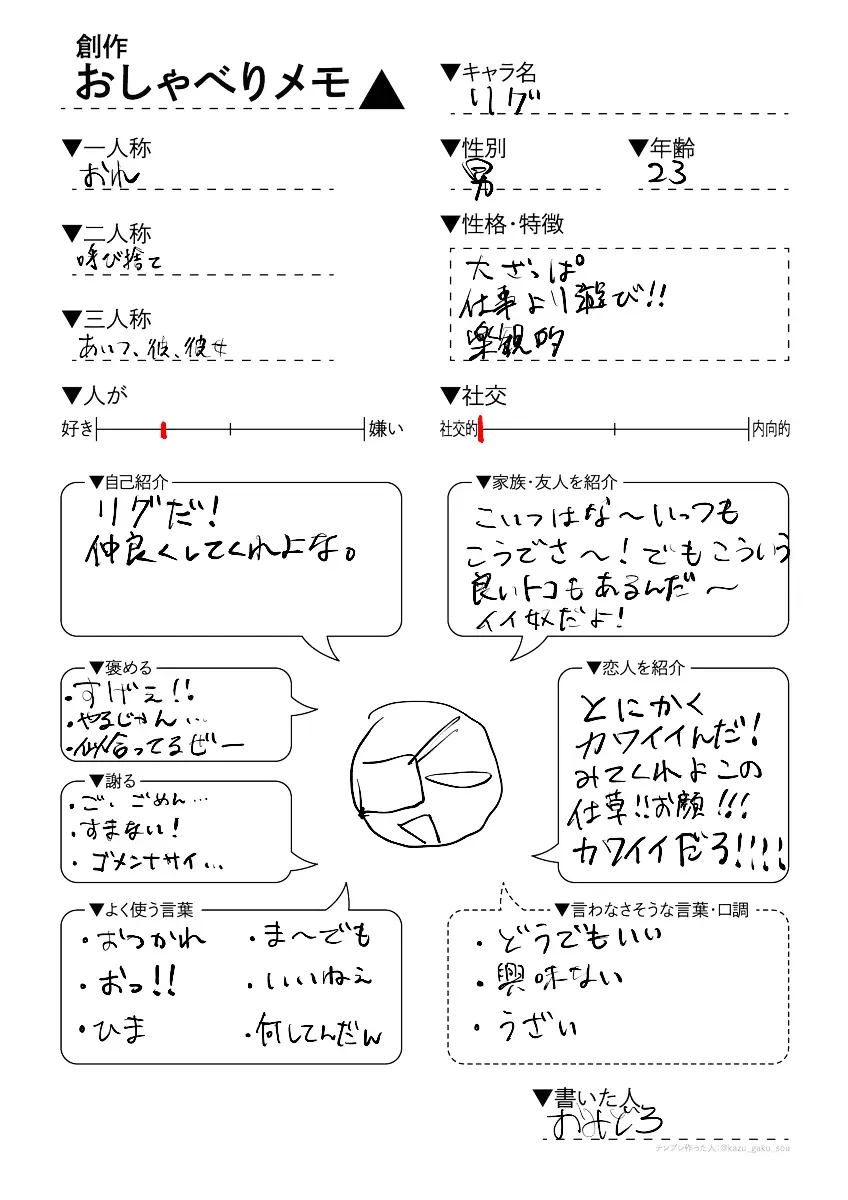 創作
おしゃべりメモ
▼キャラ名
リグ
▼一人称
おれ
▼性別
男
▼年齢
23
▼二人称
呼び捨て
▼性格・特徴
大ざっぱ
仕事より遊び!!
楽観的
▼三人称
あいつ、彼、彼女
▼人が
好き
嫌い
▼社交
社交的
内向的
▼自己紹介
リグだ!
仲良くしてくれよな。
▼家族・友人を紹介
こいつはな〜いっつも
こうでさ〜!でもこういう
良いトコもあるんだ〜
イイ奴だよ!
▼褒める
・すげぇ!!
・やるじゃん…
・似合ってるぜー
▼謝る
・ご、ごめん…
・すまない!
・ゴメンナサイ…
▼恋人を紹介
とにかく
カワイイんだ!
みてくれよこの
仕草!!お顔!!!
カワイイだろ!!!!
▼よく使う言葉
・おつかれ
・おっ!!
・ひま
・ま〜でも
・いいねぇ
・何してんだん
▼言わなさそうな言葉・口調
・どうでもいい
・興味ない
・うざい
▼書いた人
おみどろ
テンプレ作った人:@kazu_gaku_sou